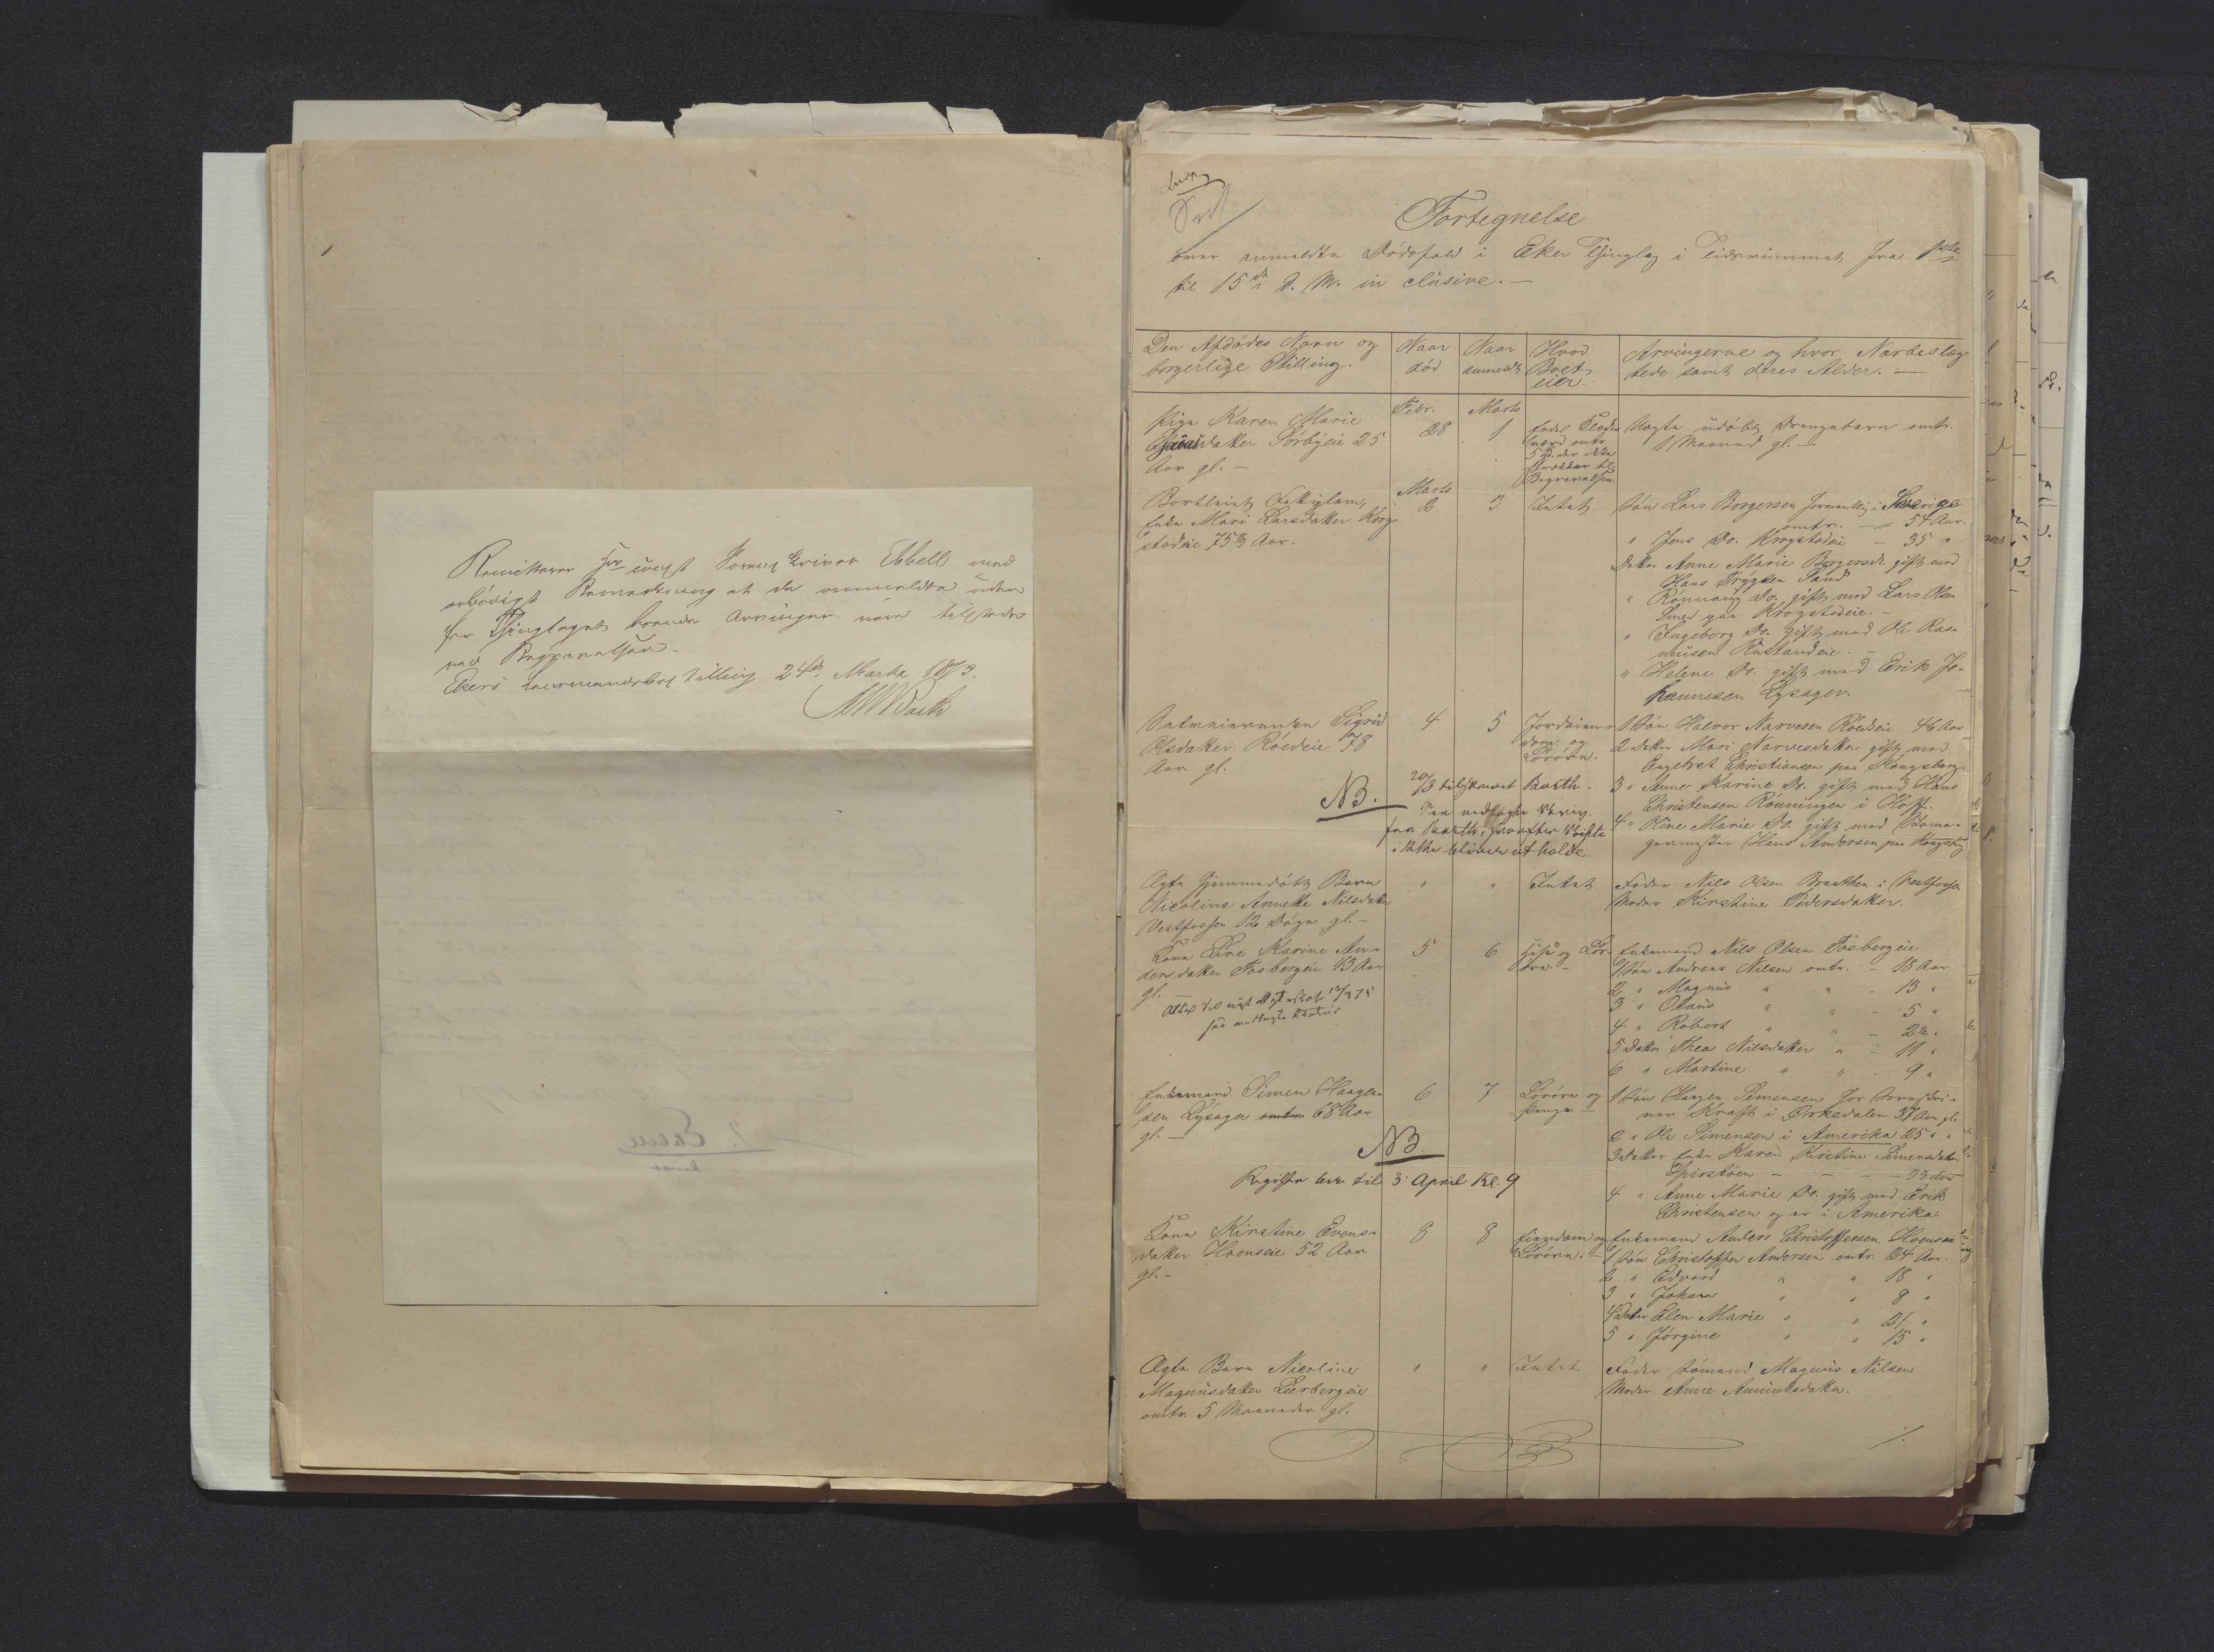 Remitteres Hr const Sorenskriver Ebbell med
ærbødigst Bemærkning at de anmeldte uden
for Thinglaget boende Arvinger vare tilstede
ved Begravelsen.
Ekers Lensmandsbestilling 24de Marts 1873.
Barth
Fortegnelse
over anmeldte Dødsfald i Eker Thinglag i Tidsrummet fra 1ste
til 15de d. M. inclusive. —
Den Afdødes Navn og borgerlige Stilling.
Naar død
Naar anmeldt
Hvad Boet eier.
Arvingerne og hvor Nærbeslæg-
tede samt deres Alder. —
Pige Karen Marie
datter Sørbyeie 25
Aar gl. —
Febr. 28
Marts 1
5 Sp. der ikke
strækker til
Begravelsen.
Uægte udøbt Drengebarn omtr.
1 Maaned gl. —
Bortleiet Fattiglem,
Enke Mari Larsdatter Krog-
stadeie 75 3/4 Aar.
Marts 2
3
Intet.
Søn Lars Borgersen formentlig i Sverige
omtr. — 54 Aar.
" Jens Do. Krogstadeie — 35 "
Datter Anne Marie Borgersdr. gift med
Hans Trygsen Sand
" Rønnaug Do. gift med Lars Olsen
Smed paa Krogstadeie. —
" Ingeborg Do. gift med Ole Ras-
musen Rustandeie. —
" Helene Do. gift med Erik Jo-
hannesen Lysager.
Sigrid
Olsdatter Røedeie 78
Aar gl.
4
5
Jordeien-
dom og
Løsøre.
1 Søn Halvor Narvesen Røedeie 46 Aar
2 Datter Mari Narvesdatter gift med
Engebret Christiansen paa Kongsberg.
3 " Anne Karine Do. gift med Hans
Christensen Rønningen i Hoff.
4 " Oline Marie Do. gift med
Hans Andersen paa Kongsberg
NB.
20/3 tilskrevet Barth.
Se vedlagte Skriv.
fra Barth, hvorefter Skifte
ikke bliver at holde.
Ægte hjemmedøbt Barn
Nicoline Annette Nilsdatter
Vestfossen 12 Døgn gl. —
"
"
Intet
Fader Nils Olsen Braathen i Vestfossen
Moder Kirstine Pedersdatter.
Kone Live Karine An-
dersdatter Fosbergeie 43 Aar
gl. —
5
6
Huse og Løs-
øre. —
Enkemand Nils Olsen Fosbergeie
1 Søn Andreas Nilsen omtr. — 18 Aar
2 " Magnus " " — 13 "
3 " Olaus " " — 5 "
4 " Robert " " — 2 1/2 "
5 Datter Thea Nilsdatter " — 11 "
6 " Martine " " 9 "
Enkemand Simen Haagen-
sen Lysager omtr. 68 Aar
gl. —
6
7
Løsøre og
Penge —
1 Søn Haagen Simensen for Sorenskri-
ver Kraft i Orkedalen 37 Aar gl.
2 " Ole Simensen i Amerika 25 " "
3 Datter Enke Karen Kirstine Simensdatter
— — — 33 Aar
4 " Anne Marie Do. gift med Erik
Christensen og er i Amerika.
NB
Registr. ber. til 3 April Kl. 9
Kone Kirstine Evens-
datter Hoenseie 52 Aar
gl. —
8
8
Eiendom og
Løsøre. —
Enkemand Anders Christoffersen Hoenseie
1 Søn Christoffer Andersen omtr. 24 Aar.
2 " Edvard " " 18 "
3 " Johan " " 8 "
4 Datter Elen Marie " " 21 "
5 " Jørgine " " 15 "
Ægte Barn Nicoline
Magnusdatter Leerbergeie
omtr. 5 Maaneder gl.
"
"
Intet.
Fader Sømand Magnus Nilsen
Moder Anne Amundsdatter.